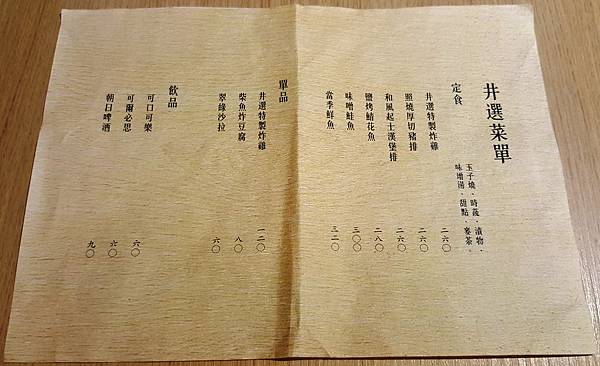 井選菜單
定食
玉子燒．時蔬．漬物．
味增湯．甜點．麥茶．
井選特製炸雞 二六〇
照燒厚切豬排 二六〇
和風起士漢堡排 二六〇
鹽烤鯖花魚 二八〇
味噌鮭魚 三〇〇
當季鮮魚 三二〇
單品
井選特製炸雞 一二〇
柴魚炸豆腐 八〇
翠綠沙拉 六〇
飲品
可口可樂 六〇
可爾必思 六〇
朝日啤酒 九〇